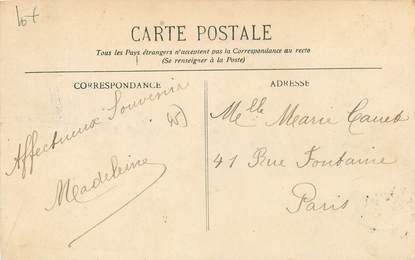 CARTE POSTALE
Tous les Pays étrangers n'acceptent pas la Correspondance au recto
(Se renseigner à la Poste)
CORRESPONDANCE
Affectueux Souvenir
Madeleine
ADRESSE
Melle Marie
41 Rue Fontaine
Paris